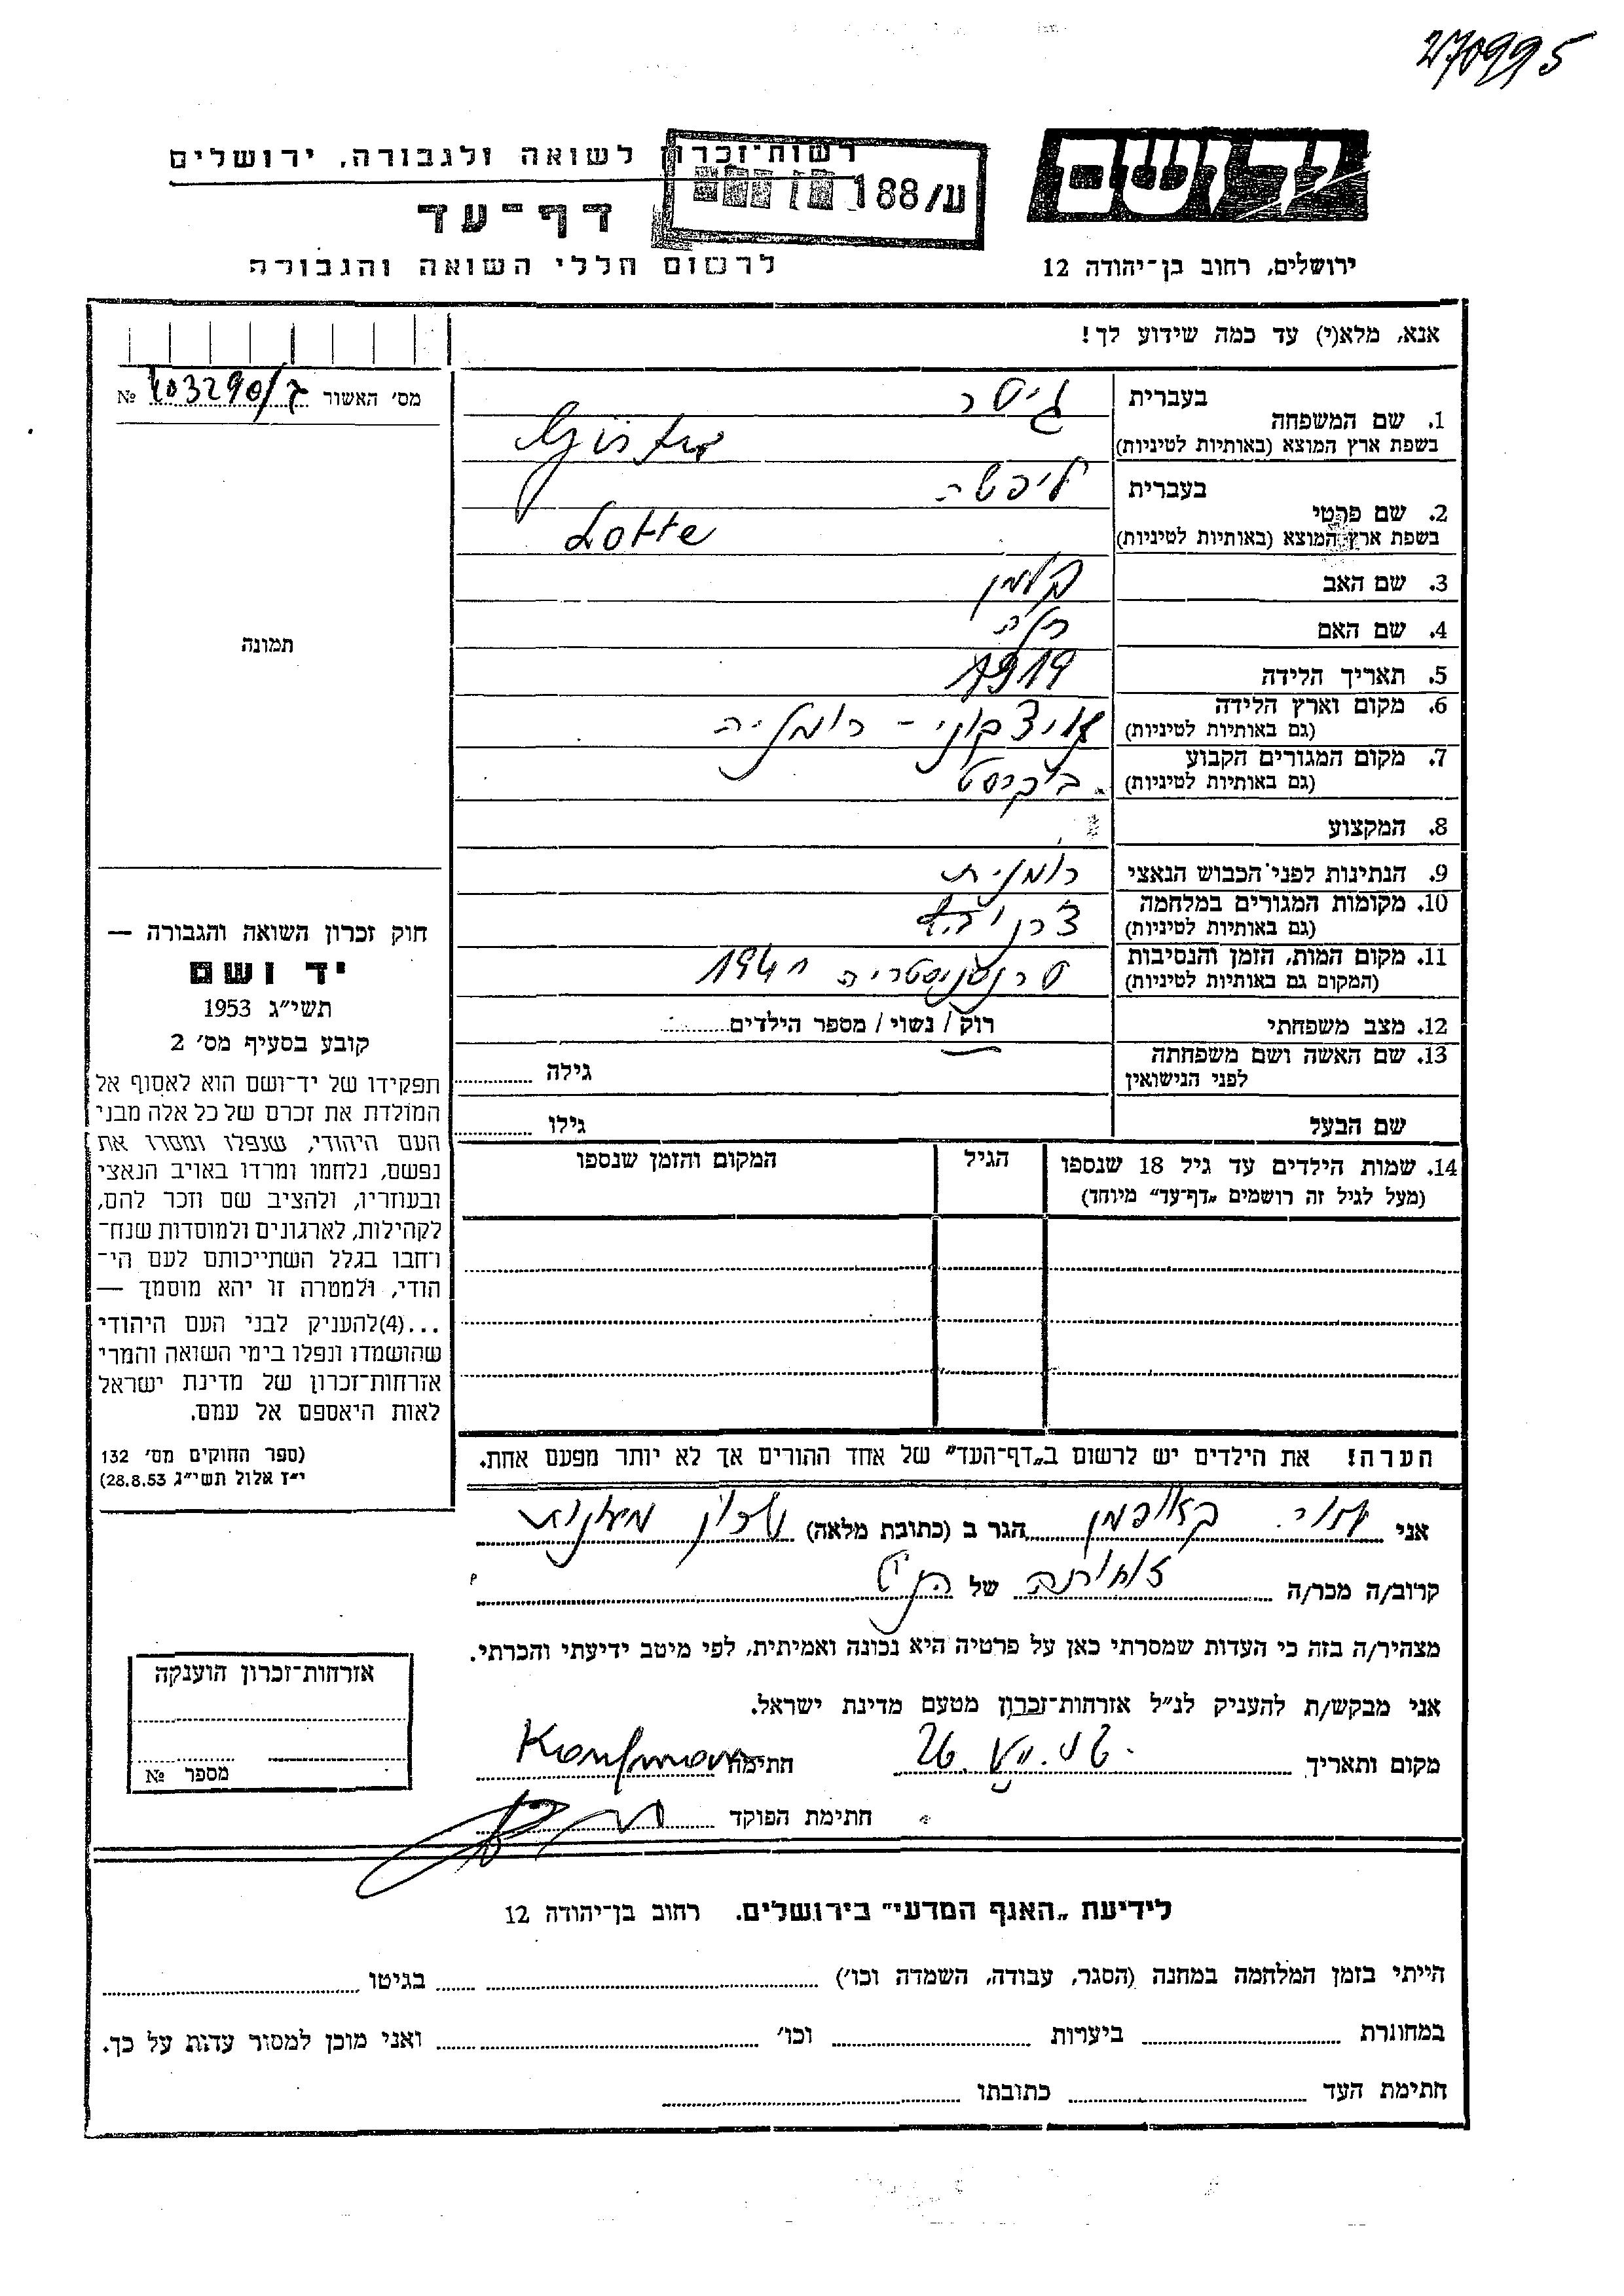 270995
רשות־זכרון לשואה ולגבורה, ירושלים
ע/188
יד ושם
דף־עד
לרשום חללי השואה והגבורה
ירושלים, רחוב בן־יהודה 12
אנא, מלא(י) עד כמה שידוע לך!
מס׳ האשור №
1. שם המשפחה
בעברית גיסר
בשפת ארץ המוצא (באותיות לטיניות)
2. שם פרטי
בעברית ליפשה
בשפת ארץ המוצא (באותיות לטיניות) Lotte
3. שם האב קלמן
4. שם האם רחל
5. תאריך הלידה 1919
6. מקום וארץ הלידה
(גם באותיות לטיניות) רומניה
7. מקום המגורים הקבוע
(גם באותיות לטיניות) בוקרסט
8. המקצוע
9. הנתינות לפני הכבוש הנאצי רומנית
10. מקומות המגורים במלחמה
(גם באותיות לטיניות)
11. מקום המות, הזמן והנסיבות
(המקום גם באותיות לטיניות) טרנסניסטריה 194
12. מצב משפחתי רוק / נשוי / מספר הילדים
13. שם האשה ושם משפחתה
לפני הנישואין גילה
שם הבעל גילו
14. שמות הילדים עד גיל 18 שנספו
(מעל לגיל זה רושמים „דף־עד” מיוחד)
הגיל
המקום והזמן שנספו
הערה! את הילדים יש לרשום ב„דף־העד” של אחד ההורים אך לא יותר מפעם אחת.
תמונה
חוק זכרון השואה והגבורה —
יד ושם
תשי״ג 1953
קובע בסעיף מס׳ 2
תפקידו של יד־ושם הוא לאסוף אל
המולדת את זכרם של כל אלה מבני
העם היהודי, שנפלו ומסרו את
נפשם, נלחמו ומרדו באויב הנאצי
ובעוזריו, ולהציב שם וזכר להם,
לקהילות, לארגונים ולמוסדות שנח־
רחבו בגלל השתייכותם לעם הי־
הודי, ולמטרה זו יהא מוסמך —
...(4)להעניק לבני העם היהודי
שהושמדו ונפלו בימי השואה והמרי
אזרחות־זכרון של מדינת ישראל
לאות היאספם אל עמם.
(ספר החוקים מס׳ 132
י״ז אלול תשי״ג 28.8.53)
אני קאופמן הגר ב (כתובת מלאה)
קרוב/ה מכר/ה של
מצהיר/ה בזה כי העדות שמסרתי כאן על פרטיה היא נכונה ואמיתית, לפי מיטב ידיעתי והכרתי.
אני מבקש/ת להעניק לנ״ל אזרחות־זכרון מטעם מדינת ישראל.
מקום ותאריך חתימה Kaufman
חתימת הפוקד
אזרחות־זכרון הוענקה
מספר №
לידיעת „האגף המדעי” בירושלים. רחוב בן־יהודה 12
הייתי בזמן המלחמה במחנה (הסגר, עבודה, השמדה וכו׳) בגיטו
במחתרת ביערות וכו׳ ואני מוכן למסור עדות על כך.
חתימת העד כתובתו